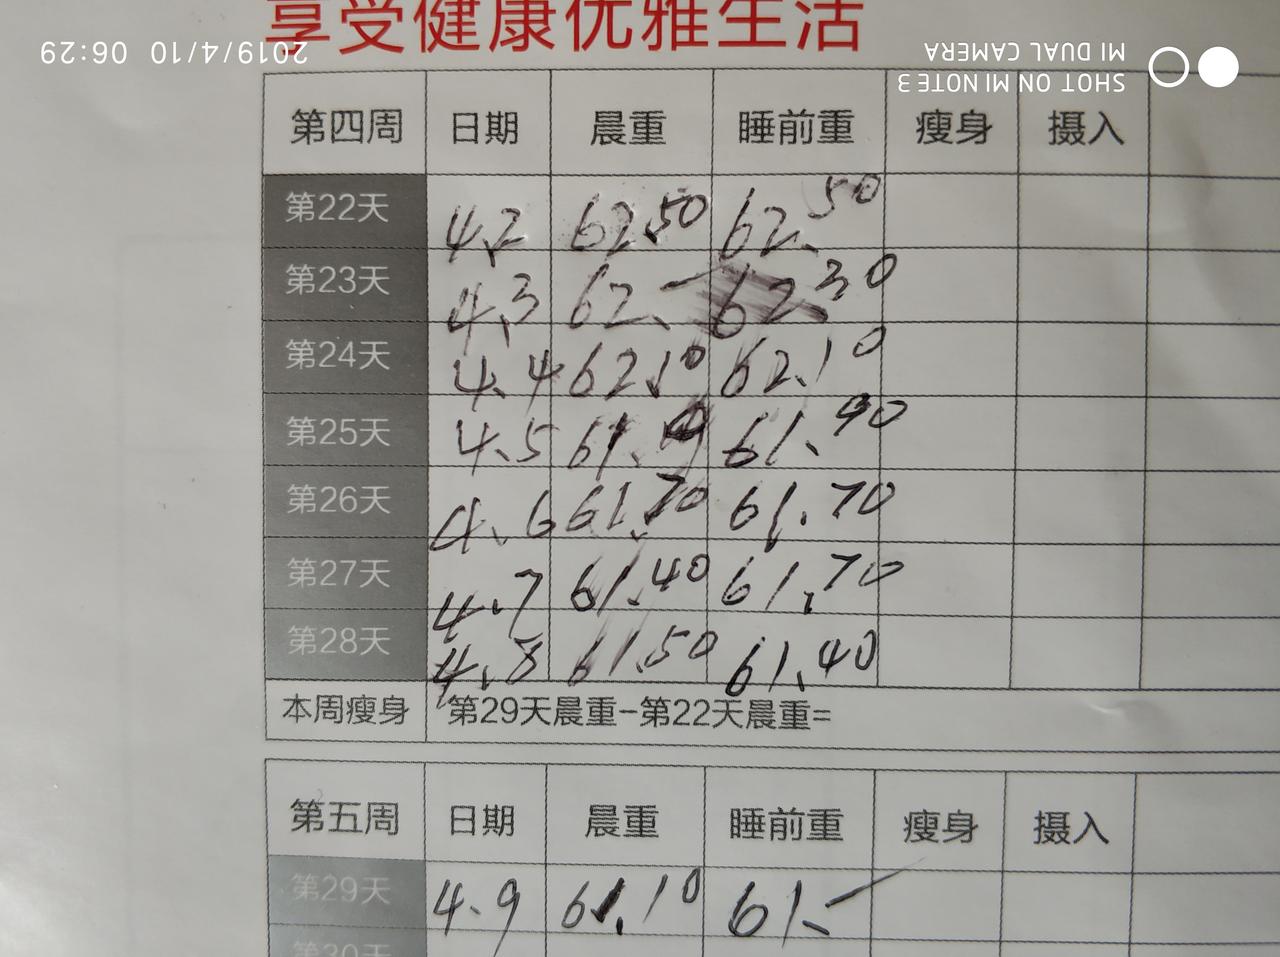 享受健康优雅生活
2019/4/10 06:29
SHOT ON MI NOTE 3
MI DUAL CAMERA
第四周 日期 晨重 睡前重 瘦身 摄入
第22天 4.2 62.50 62.50
第23天 4.3 62.- 62.30
第24天 4.4 62.10 62.10
第25天 4.5 61. 61.90
第26天 4.6 61.70 61.70
第27天 4.7 61.40 61.70
第28天 4.8 61.50 61.40
本周瘦身 第29天晨重-第22天晨重=
第五周 日期 晨重 睡前重 瘦身 摄入
第29天 4.9 61.10 61.-
第30天